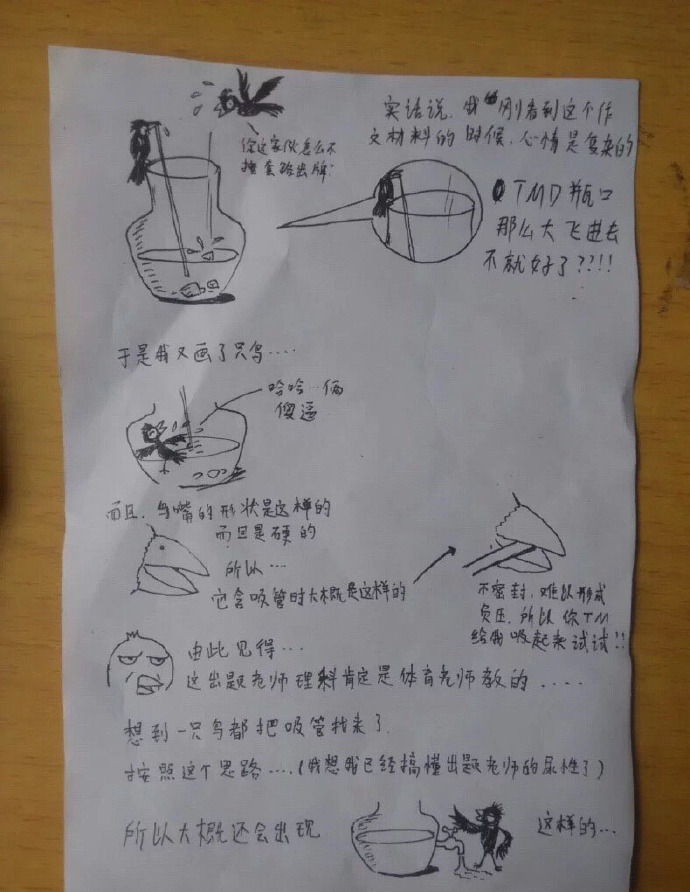 实话说,我刚看到这个作
文材料的时候,心情是复杂的
你这家伙怎么不
按套路出牌?
TMD瓶口
那么大飞进去
不就好了???!!!
于是我又画了只鸟....
哈哈…俩
傻逼
而且,鸟嘴的形状是这样的
而且是硬的
所以…
它含吸管时大概是这样的
不密封,难以形成
负压,所以你TM
给我吸起来试试!!
由此见得...
这出题老师理科肯定是体育老师教的.....
想到一只鸟都把吸管找来了
按照这个思路....(我想我已经搞懂出题老师的尿性了)
所以大概还会出现
这样的...